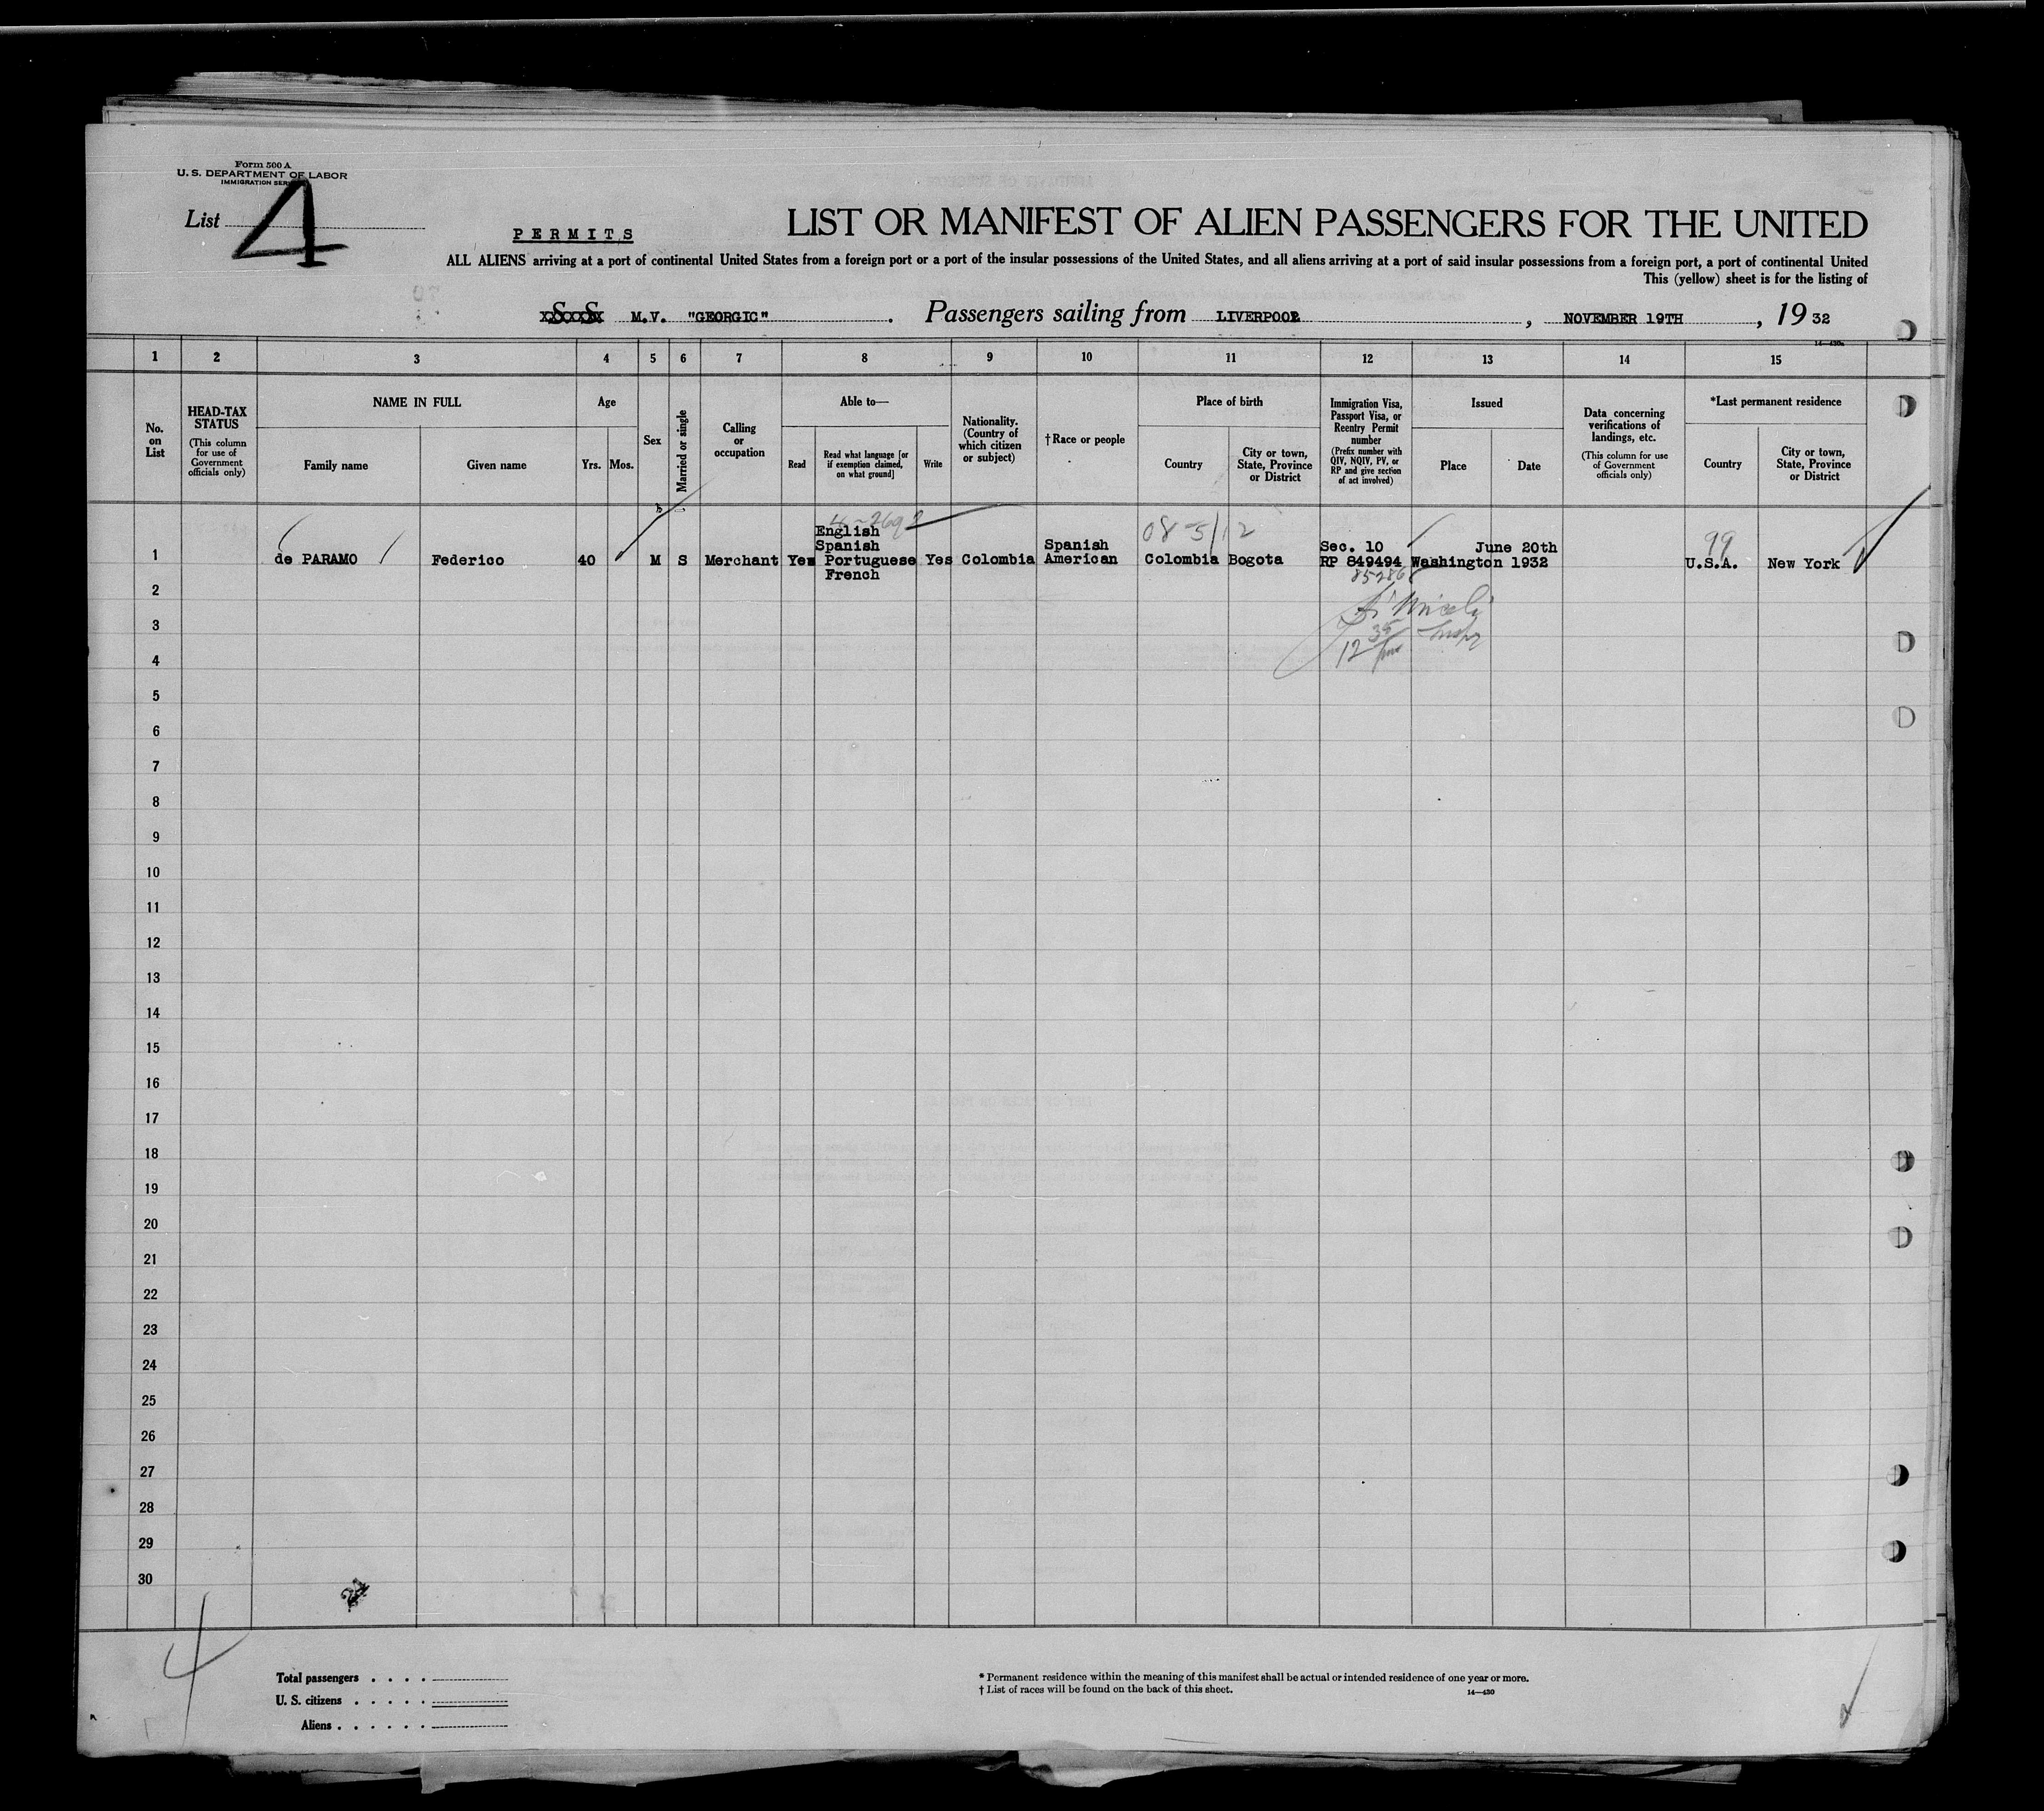 Form 500 A
U. S. DEPARTMENT OF LABOR
IMMIGRATION
List 4
PERMITS
LIST OR MANIFEST OF ALIEN PASSENGERS FOR THE UNITED
ALL ALIENS arriving at a port of continental United States from a foreign port or a port of the insular possessions of the United States, and all aliens arriving at a port of said insular possessions from a foreign port, a port of continental United
This (yellow) sheet is for the listing of
M.V. "GEORGIC" . Passengers sailing from LIVERPOOL , NOVEMBER 19TH , 19 32
1 2 3 4 5 6 7 8 9 10 11 12 13 14 15
No. on List
HEAD-TAX STATUS
(This column for use of Government officials only)
NAME IN FULL
Family name
Given name
Age
Yrs. Mos.
Sex
Married or single
Calling or occupation
Able to—
Read
Read what language [or if exemption claimed, on what ground]
Write
Nationality. (Country of which citizen or subject)
† Race or people
Place of birth
Country
City or town, State, Province or District
Immigration Visa, Passport Visa, or Reentry Permit number
(Prefix number with QIV, NQIV, PV, or RP and give section of act involved)
Issued
Place
Date
Data concerning verifications of landings, etc.
(This column for use of Government officials only)
*Last permanent residence
Country
City or town, State, Province or District
08-5/12
99
English
Spanish
Spanish
Sec. 10
June 20th
1 de PARAMO Federico 40 M S Merchant Yes Portuguese Yes Colombia American Colombia Bogota RP 849494 Washington 1932 U.S.A. New York
French
85286
12 35
2
3
4
5
6
7
8
9
10
11
12
13
14
15
16
17
18
19
20
21
22
23
24
25
26
27
28
29
30
4
Total passengers . . . .
U. S. citizens . . . . .
Aliens . . . . . .
* Permanent residence within the meaning of this manifest shall be actual or intended residence of one year or more.
† List of races will be found on the back of this sheet.
14—430